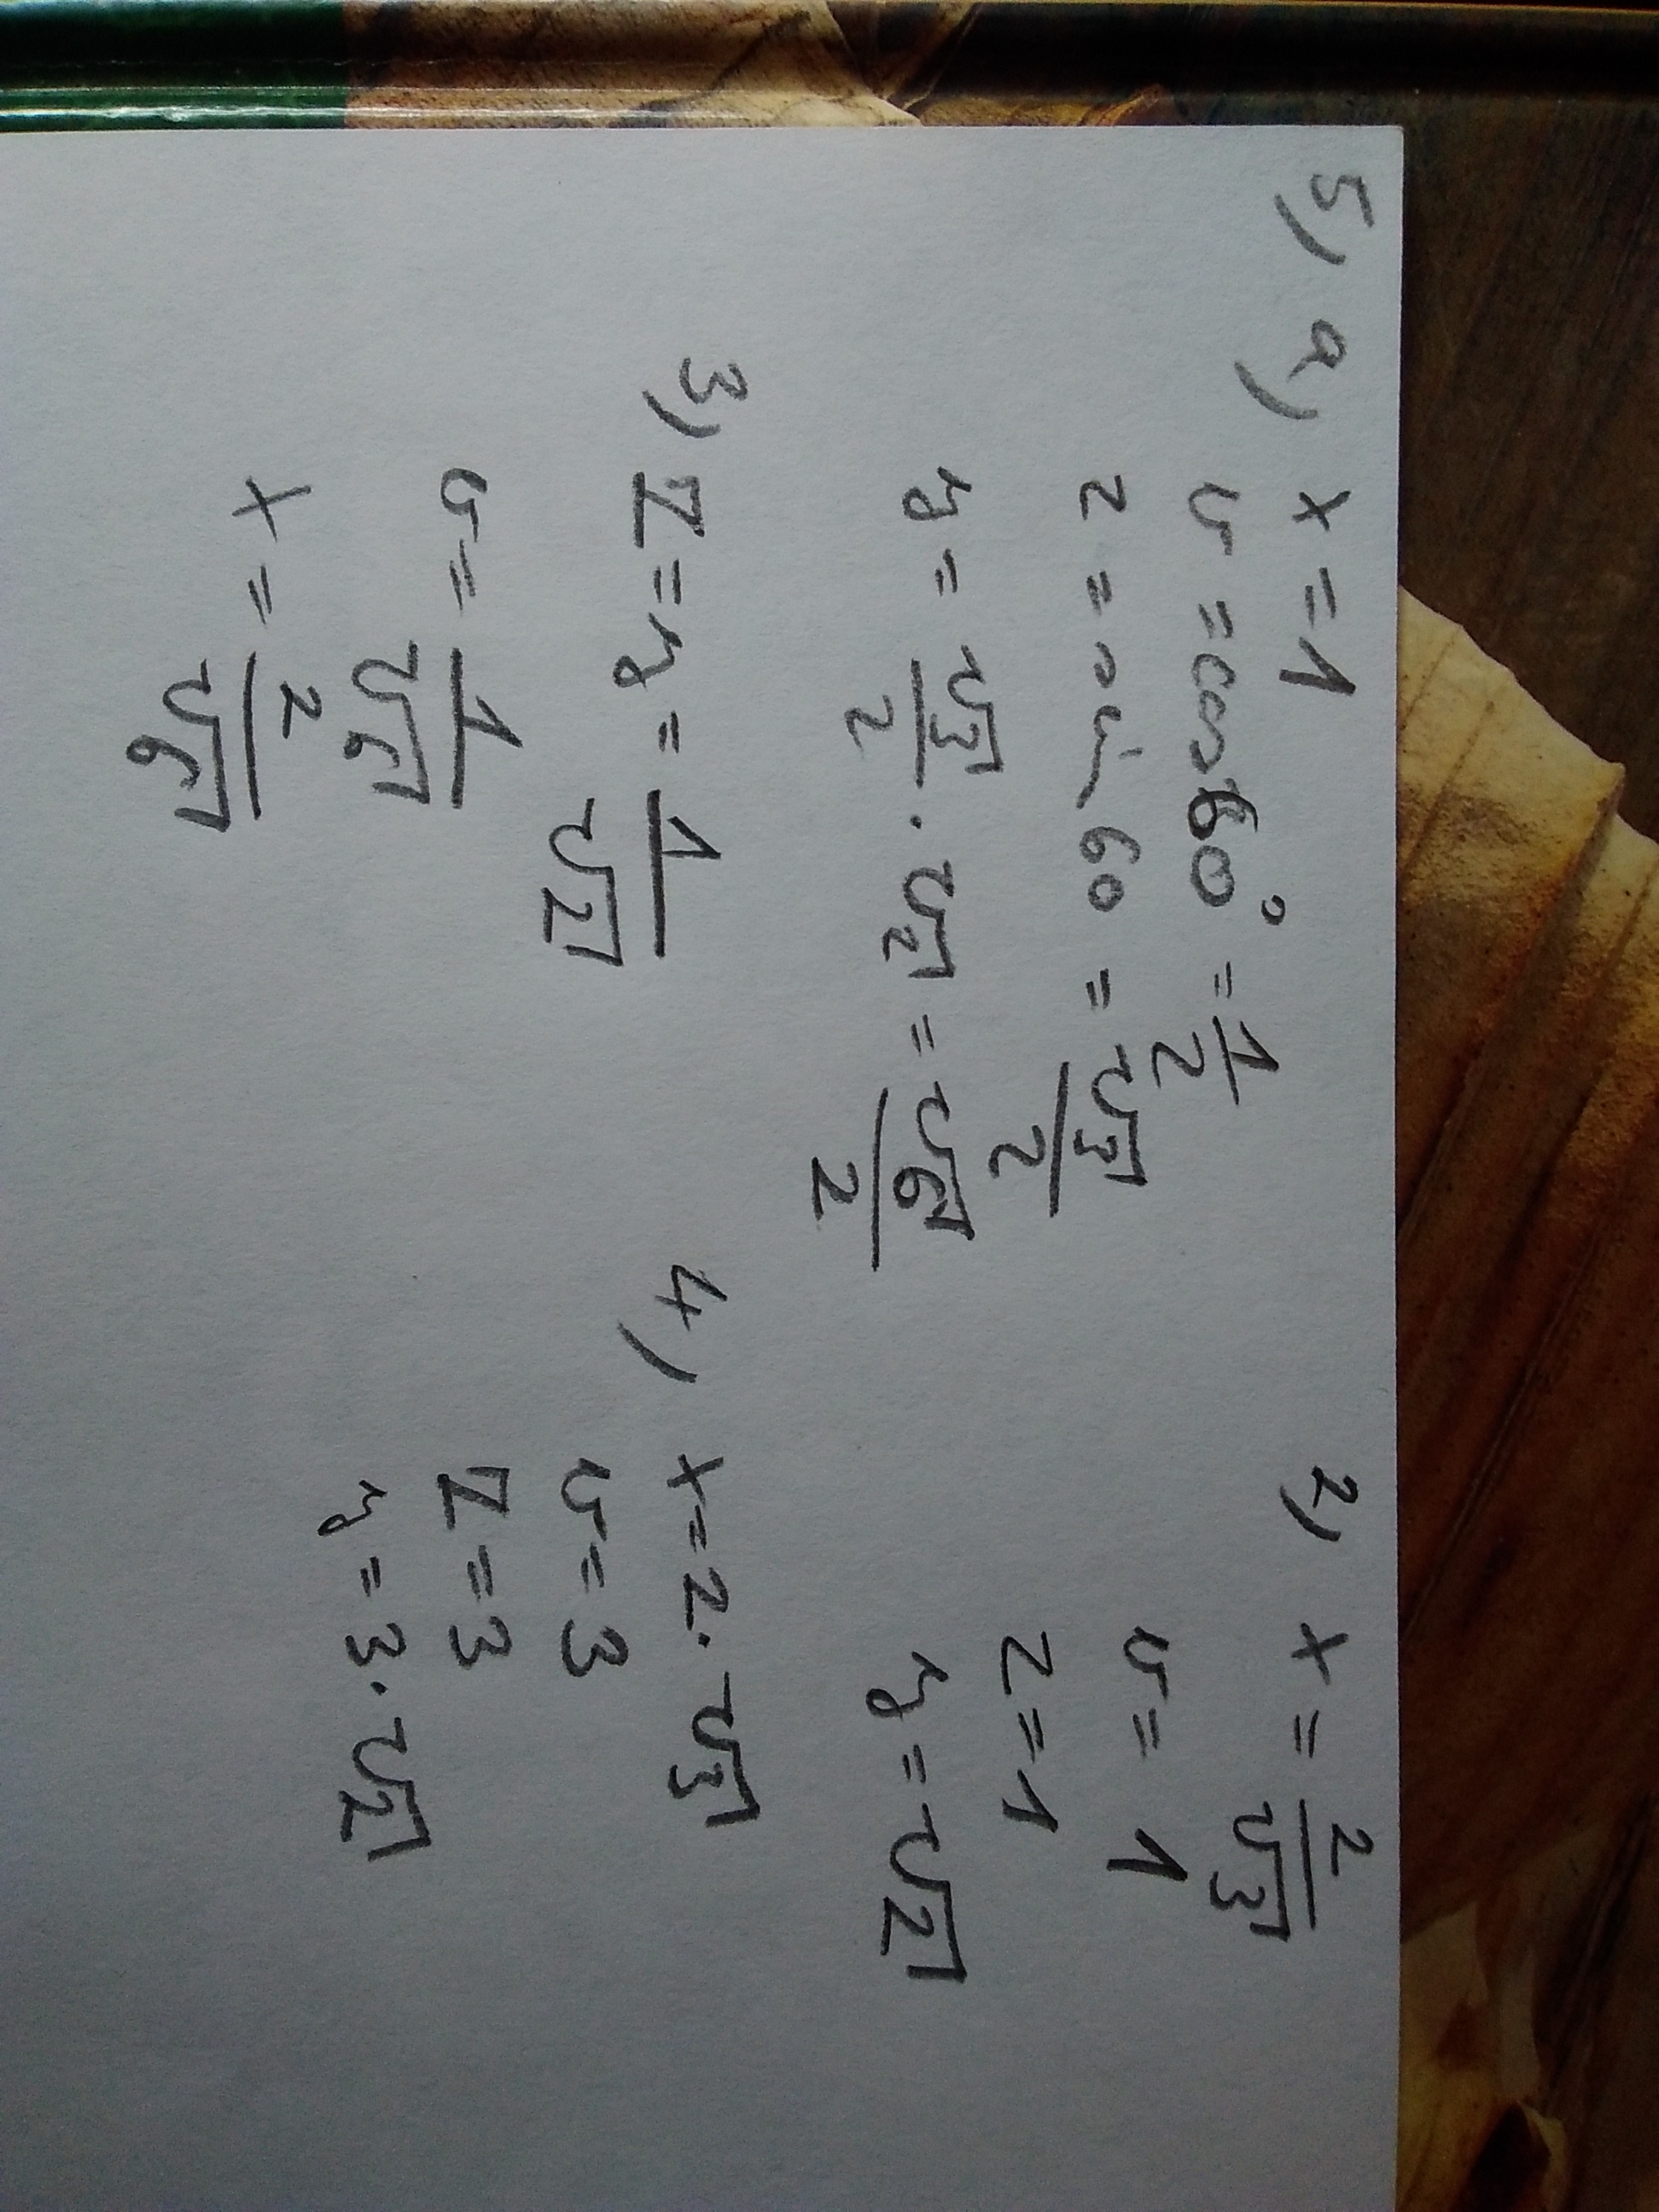 5) a) x = 1
v = cos 60° = 1/2
z = sin 60 = √3/2
y = √3/2 · √2 = √6/2
2) x = 2/√3
v = 1
z = 1
y = √2
3) z = y = 1/√2
v = 1/√6
x = 2/√6
4) x = 2 · √3
v = 3
z = 3
y = 3 · √2